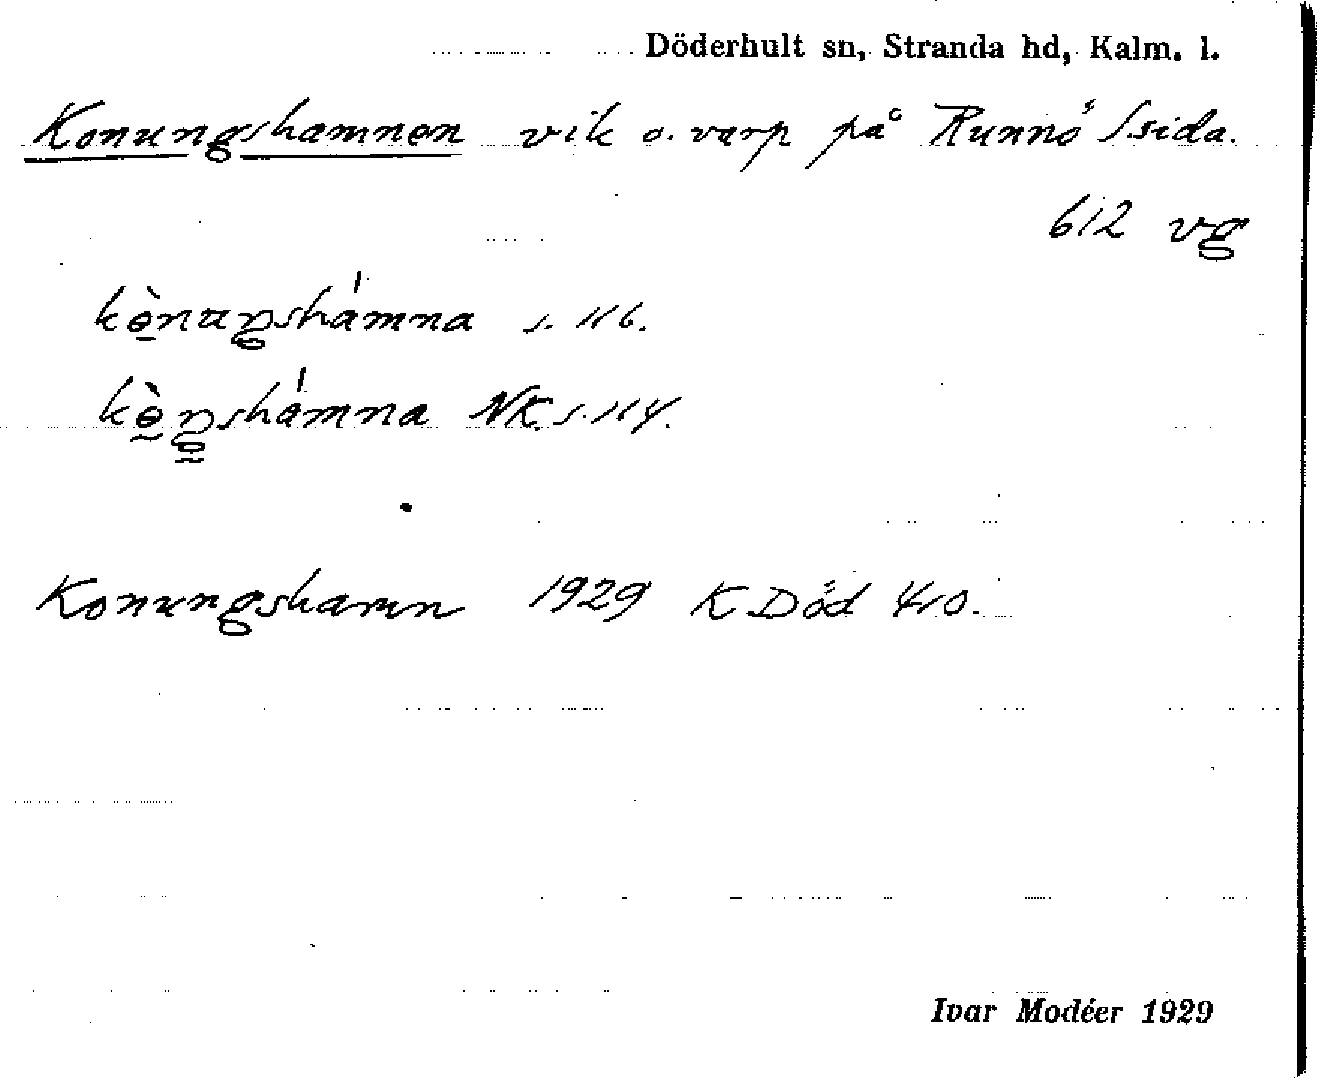 Döderhult sn, Stranda hd, Kalm. l.
Konungshamnen vik o. varp på Runnö Ssida.
612 vg
kònuŋshámna s. 116.
kòŋshámna NK s. 114.
Konungshamn 1929 K Död 410.
Ivar Modéer 1929